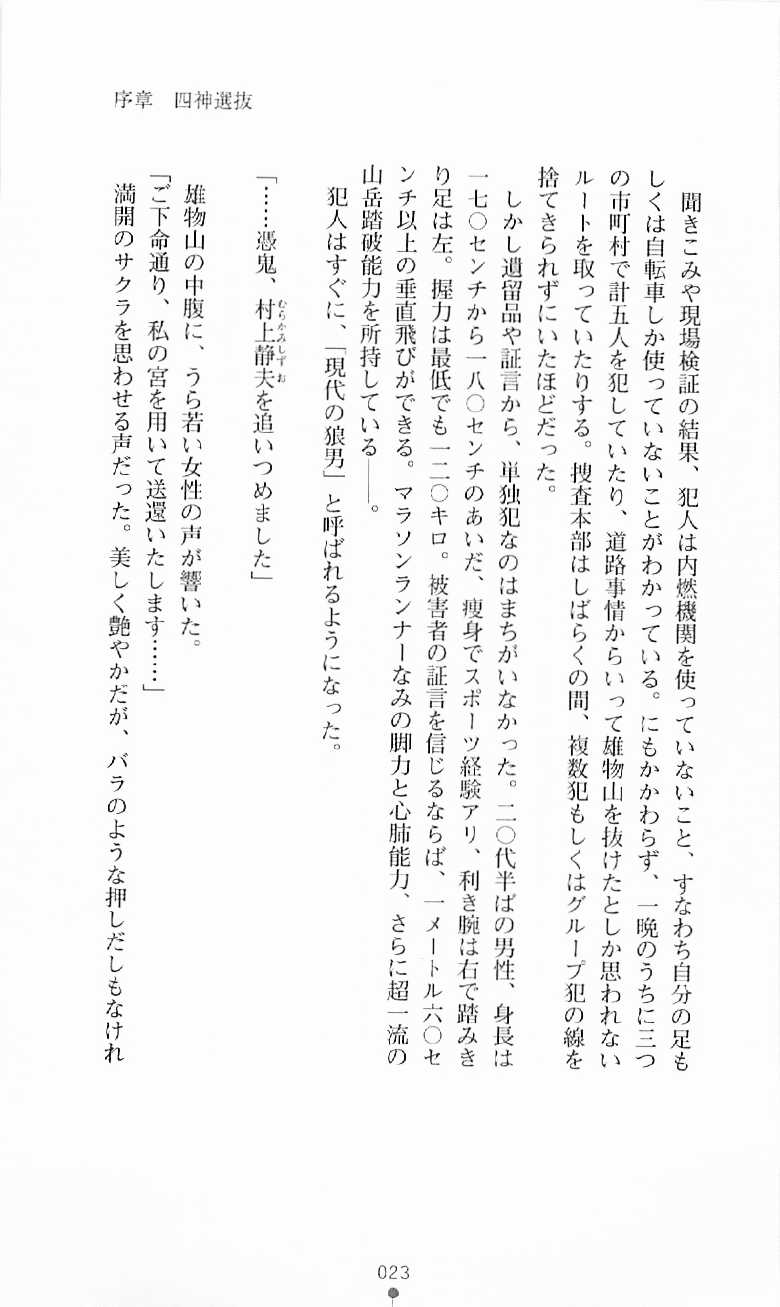 序章　四神選抜
　聞きこみや現場検証の結果、犯人は内燃機関を使っていないこと、すなわち自分の足も
しくは自転車しか使っていないことがわかっている。にもかかわらず、一晩のうちに三つ
の市町村で計五人を犯していたり、道路事情からいって雄物山を抜けたとしか思われない
ルートを取っていたりする。捜査本部はしばらくの間、複数犯もしくはグループ犯の線を
捨てきられずにいたほどだった。
　しかし遺留品や証言から、単独犯なのはまちがいなかった。二〇代半ばの男性、身長は
一七〇センチから一八〇センチのあいだ、痩身でスポーツ経験アリ、利き腕は右で踏みき
り足は左。握力は最低でも一二〇キロ。被害者の証言を信じるならば、一メートル六〇セ
ンチ以上の垂直飛びができる。マラソンランナーなみの脚力と心肺能力、さらに超一流の
山岳踏破能力を所持している――。
　犯人はすぐに、「現代の狼男」と呼ばれるようになった。
「……憑鬼、村上静夫を追いつめました」
むらかみしずお
　雄物山の中腹に、うら若い女性の声が響いた。
「ご下命通り、私の宮を用いて送還いたします……」
　満開のサクラを思わせる声だった。美しく艶やかだが、バラのような押しだしもなけれ
023